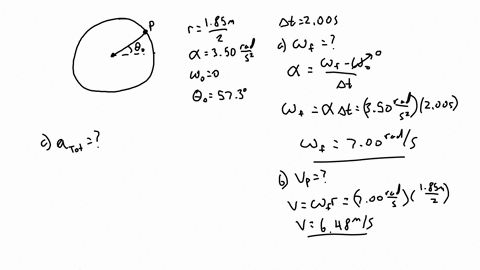 P
θ₀
r = 1.85m / 2
α = 3.50 rad/s²
ω₀ = 0
θ₀ = 57.3°
c) a_Tot = ?
Δt = 2.00s
a) ω_f = ?
α = (ω_f - ω₀↗0) / Δt
ω_f = α Δt = (3.50 rad/s²)(2.00s)
ω_f = 7.00 rad/s
b) V_P = ?
V = ω_f r = (7.00 rad/s)(1.85m / 2)
V = 6.48 m/s